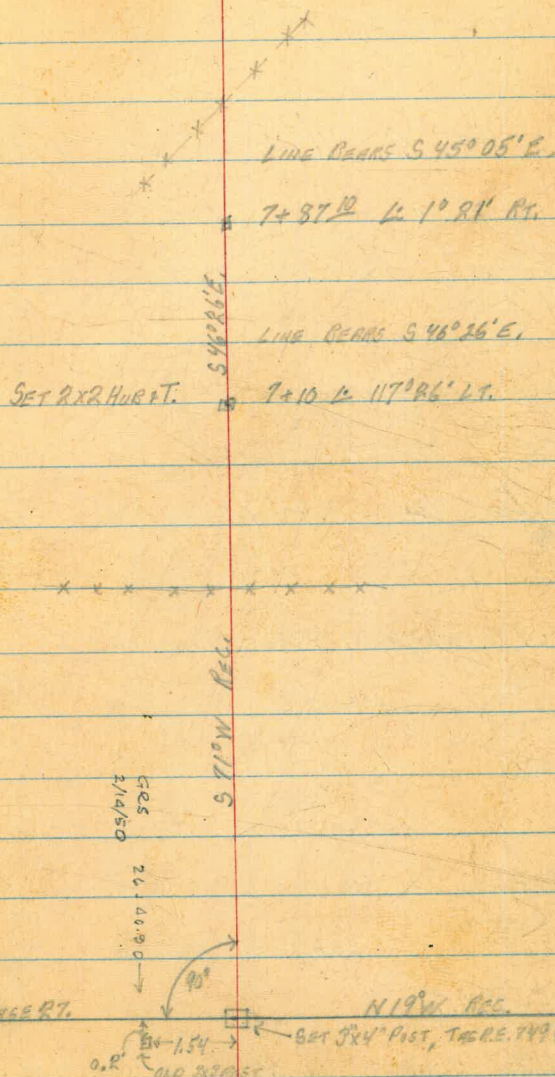 LINE BEARS S 45° 05' E.
7+87 10 ∠ 1° 21' RT.
S 46° 26' E.
LINE BEARS S 46° 26' E.
SET 2X2 HUB & T.
7+10 ∠ 117° 26' LT.
S 71° W REC.
GRS
2/14/50
26+40.90
90°
N 19° W REC.
SET 3"X4" POST, TAG R.E. 749
1.54
0.2'
OLD POST